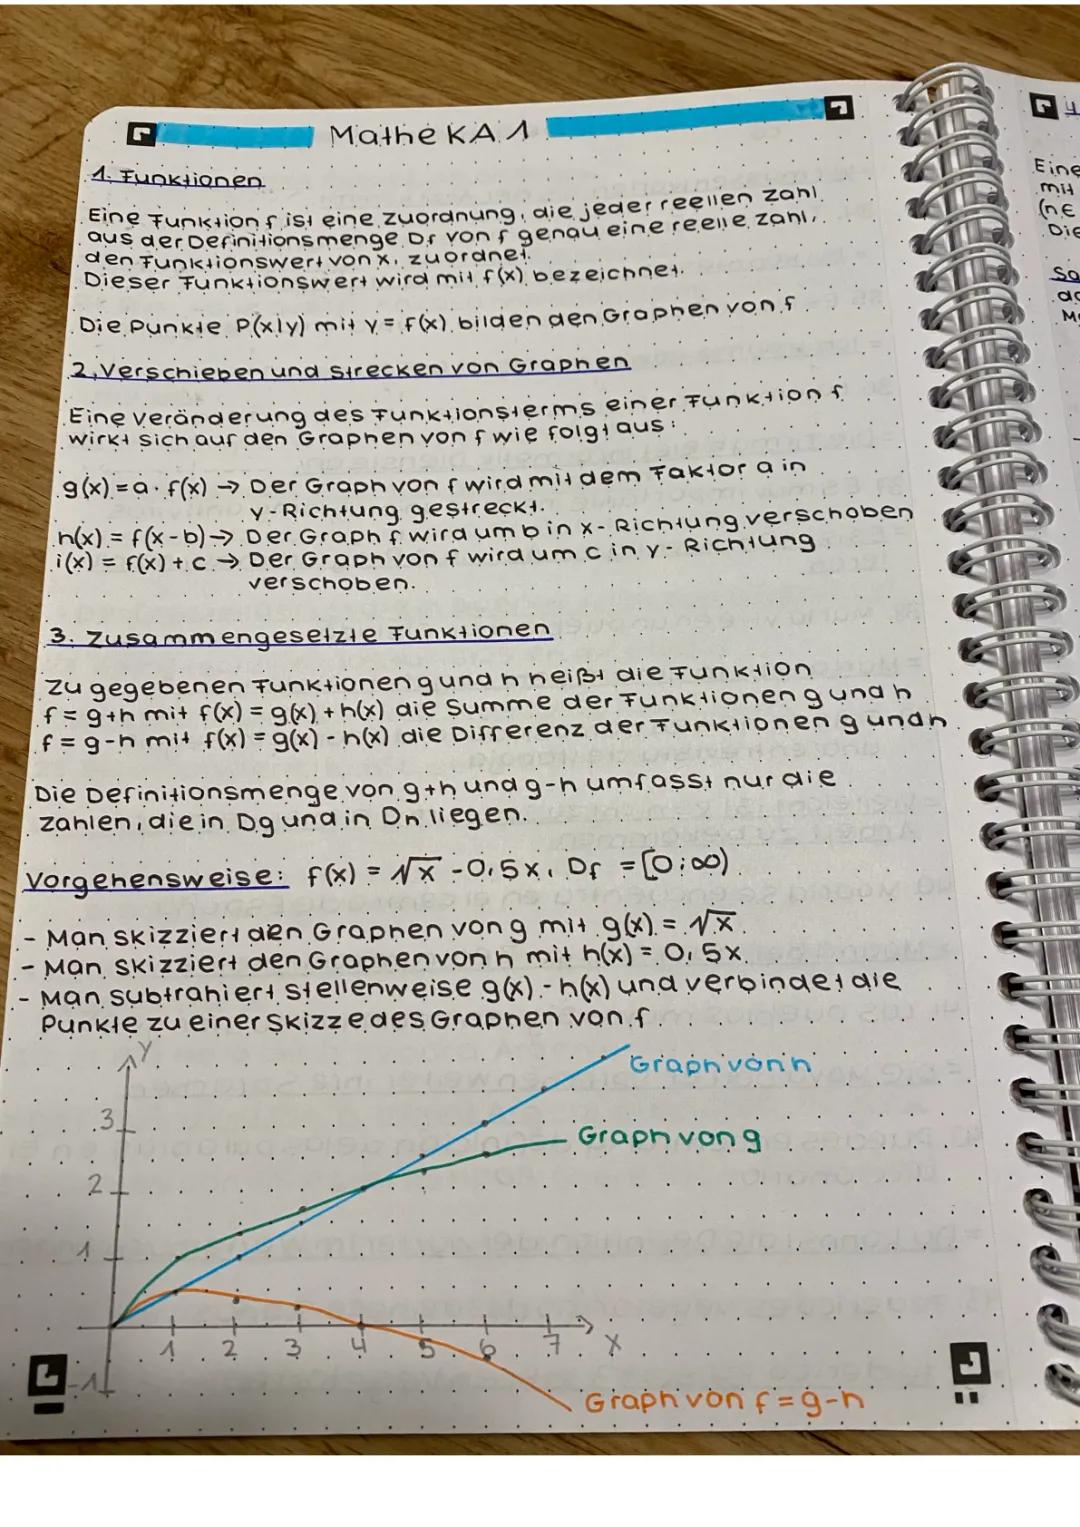 Mathe KA 1
1. Funktionen
Eine Funktion f ist eine Zuordnung, die jeder reellen Zahl
aus der Definitionsmenge Df von f genau eine reelle Zahl,
den Funktionswert von x, zuordnet.
Dieser Funktionswert wird mit f(x) bezeichnet.
Die Punkte P(x|y) mit y = f(x) bilden den Graphen von f.
2. Verschieben und Strecken von Graphen
Eine Veränderung des Funktionsterms einer Funktion f
wirkt sich auf den Graphen von f wie folgt aus:
g(x) = a · f(x) → Der Graph von f wird mit dem Faktor a in
y-Richtung gestreckt.
h(x) = f(x-b) → Der Graph f wird um b in x-Richtung verschoben
i(x) = f(x) + c → Der Graph von f wird um c in y-Richtung
verschoben.
3. Zusammengesetzte Funktionen
Zu gegebenen Funktionen g und h heißt die Funktion
f = g+h mit f(x) = g(x) + h(x) die Summe der Funktionen g und h
f = g-h mit f(x) = g(x) - h(x) die Differenz der Funktionen g und h.
Die Definitionsmenge von g+h und g-h umfasst nur die
Zahlen, die in Dg und in Dh liegen.
Vorgehensweise: f(x) = √x - 0,5x, Df = [0;∞)
- Man skizziert den Graphen von g mit g(x) = √x.
- Man skizziert den Graphen von h mit h(x) = 0,5x.
- Man subtrahiert stellenweise g(x) - h(x) und verbindet die
Punkte zu einer Skizze des Graphen von f.
y
Graph von h
3
Graph von g
2
1
1 2 3 4 5 6 7 x
-1
Graph von f = g-h
Eine
mit
Die